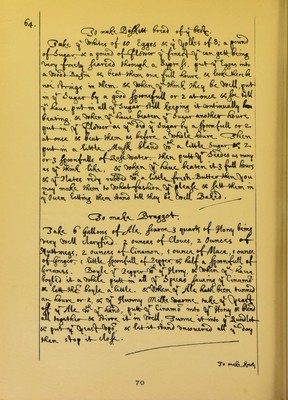 64.
To make Biskett bread of ye best.
Take ye Whites of 10 Egges & ye Yolkes of 8; a pound
of Sugar & a pound of Flower ye finest yu can gett being
very finely searced through a Searse. put ye Egges into
a Wood Bason & beat them one full houre &
Strings in them. & When yu think they be Well put
in ye Sugar by a good spoonfull or 2 at once & so till
yu have put in all ye Sugar still keeping it continually
beating & When yu have beaten ye Sugar another houre
put in ye Flower as yu did ye Sugar by a spoonfull or 2
at once & beat them as before a whole houre. Then
put in a little Musk blend with a little Sugar & 2
or 3 spoonfulls of Rosewater. then putt yr Seeds as many
as yu think fit. & When yu have beaten it 3 full hours
& ye Plates rubbed with a little fresh Butter then you
may make them to What fashion yu please & sett them in
ye Oven letting them stand till they be Well Baked.
To make Bragget.
Take 6 Gallons of Ale fearce 3 quarts of Hony being
very Well claryfied 2 ounces of Cloves, 2 Ounces of
Nuttmegs, 2 ounces of Cinamon, 1 ounce of Mace, 1 ounce
of Ginger 1 little spoonfull of Pepper & half a spoonfull of
Graines. Boyle ye Pepper with ye Hony & When yu have
boyled it a While put in all ye Spices saving ye Cinamō
& lett them boyle a little. & When ye Ale hath been tunned
an houre or 2 & yu Hunny Milke Warme take yr
off ye Ale with yr hand, putt ye Cinamō into ye Hony & blend
all together & Stirre it in Well. Tunne it into ye Rundlet
& put ye Yeast & let it stand uncovered all ye Day
then stop it close.
To make
70